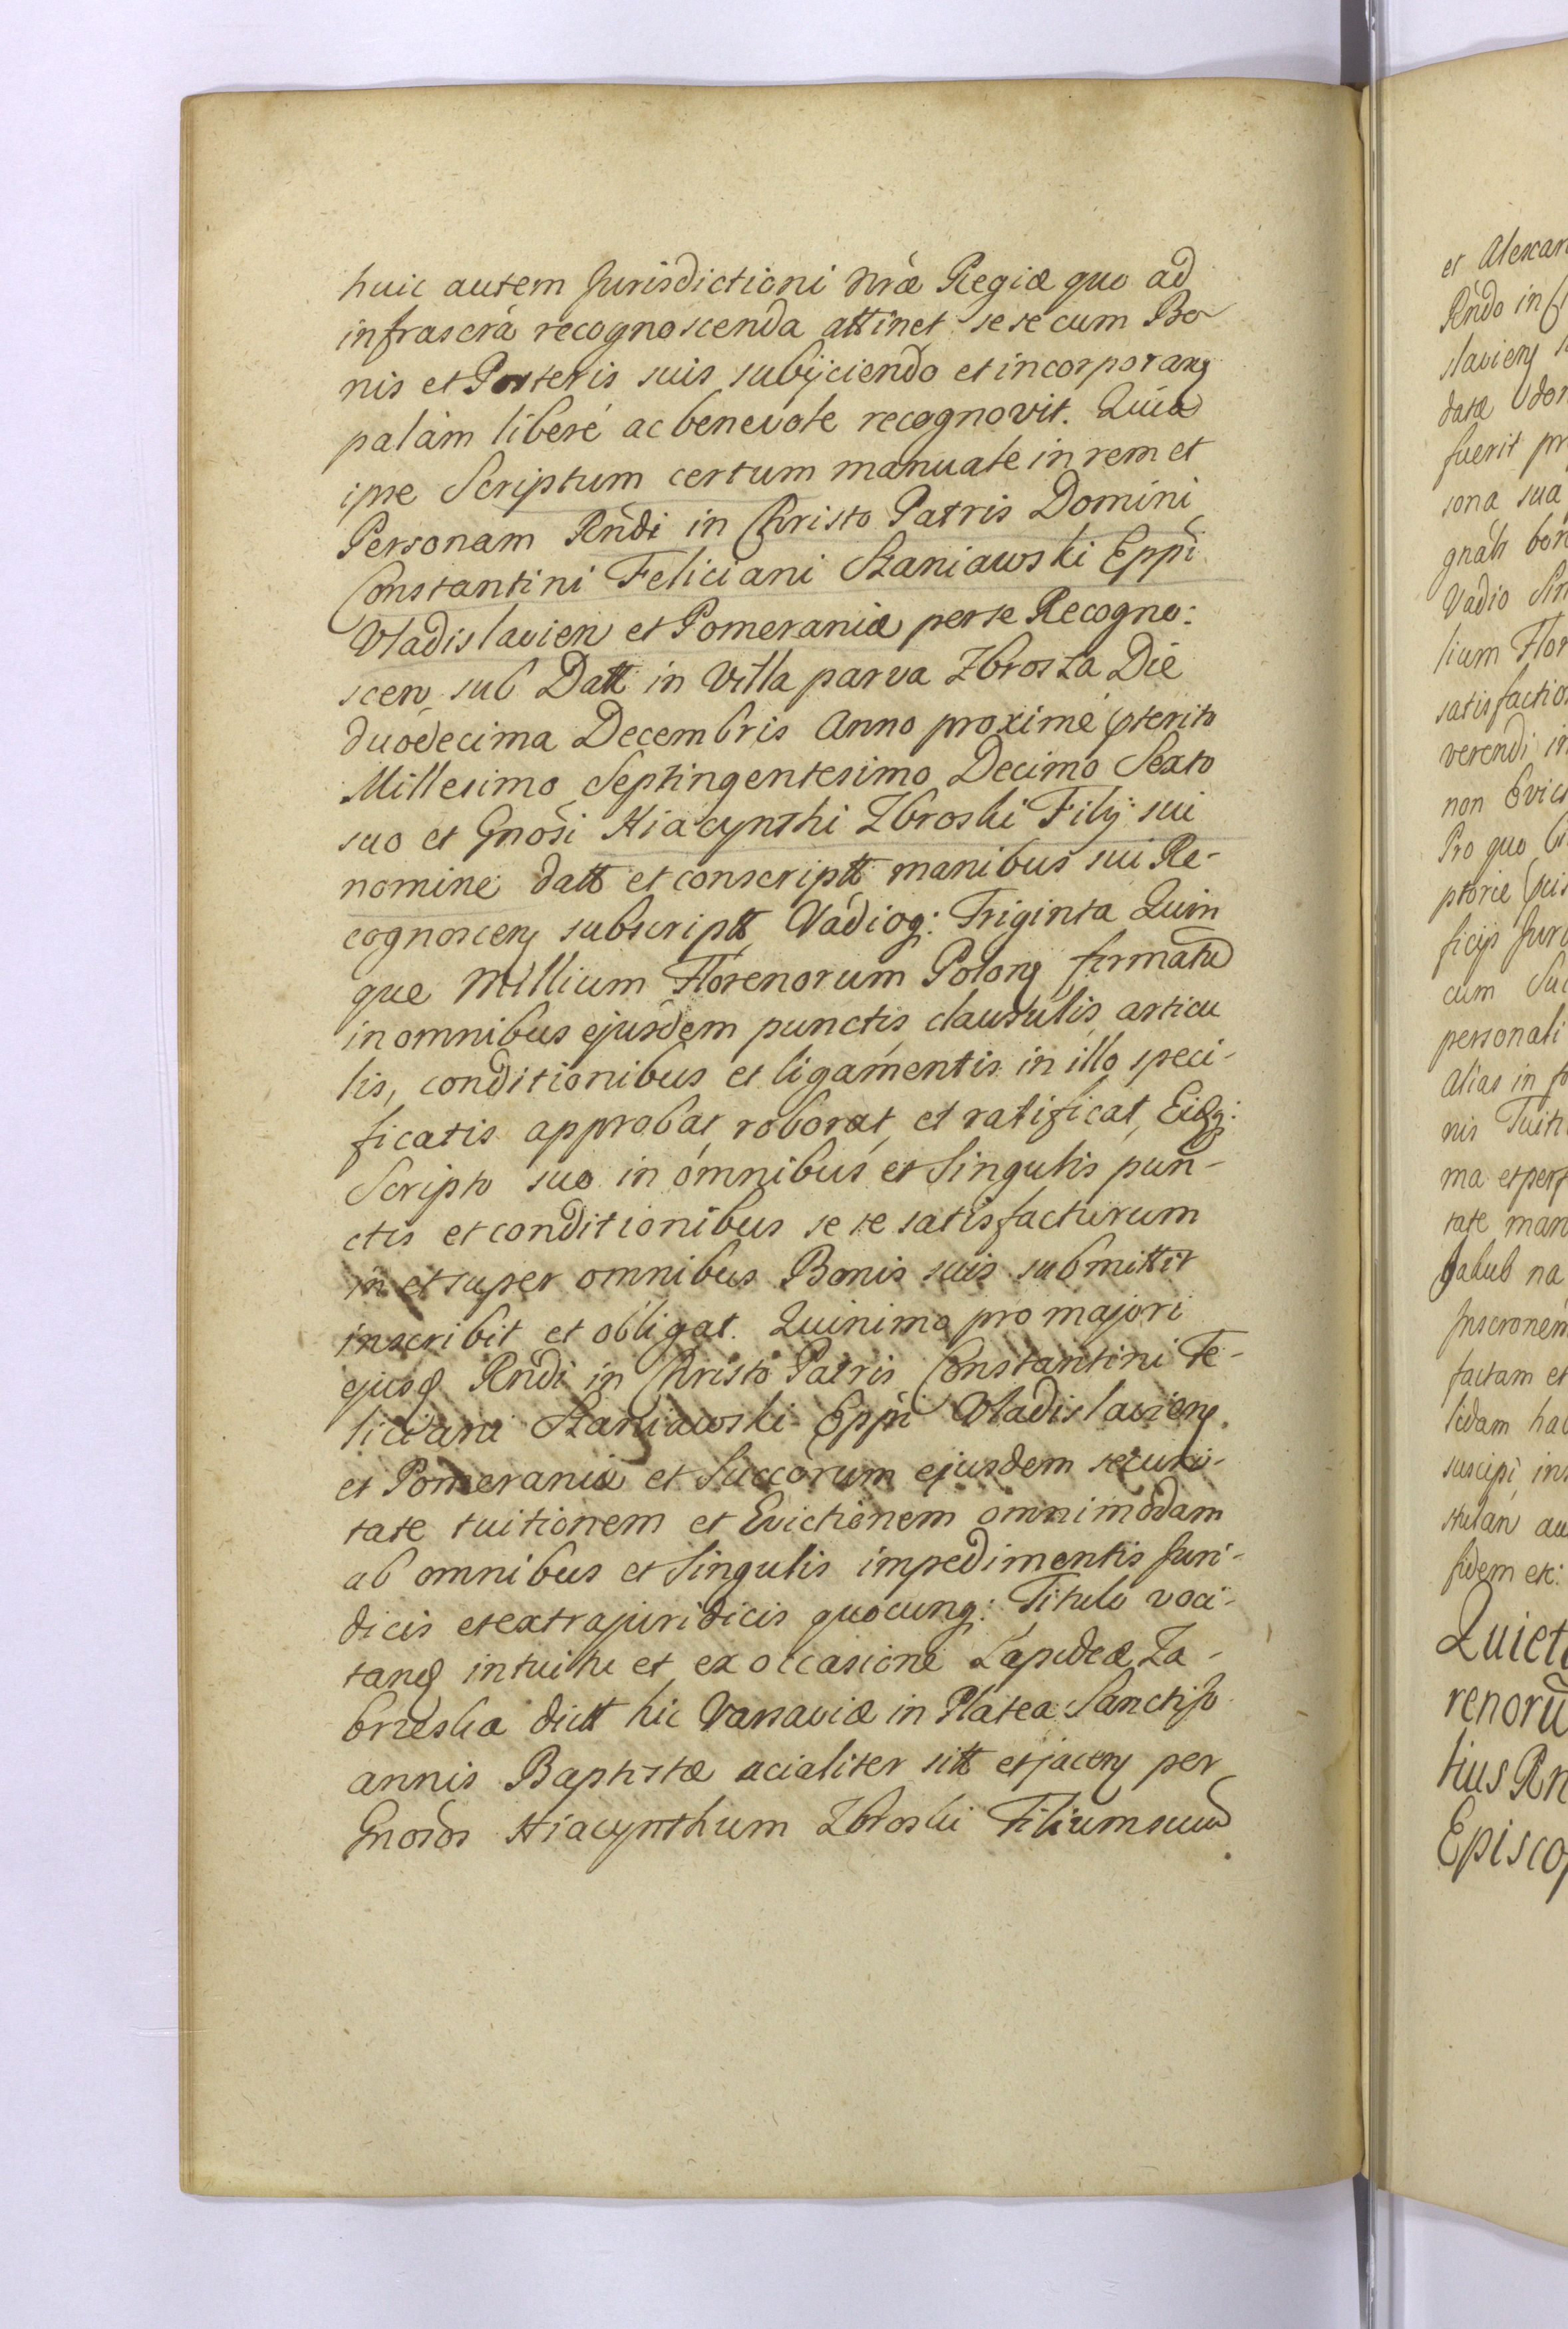 huic autem Jurisdictioni nræ Regiæ quo ad
infrascrà recognoscenda attinet sese cum Bo
nis et Posteris suis subijciendo et incorporan
palàm liberé ac benevole recognovit. Quia
ipse Scriptum certum manuale in rem et
Personam Rndi in Christo Patris Domini
Constantini Feliciani Szaniawski Eppi
Vladislavien et Pomeraniæ per se Recogno:
scen sub Datt in Villa parva Zbroszа Die
duodecima Decembris Anno proximé pterito
Millesimo Septingentesimo Decimo Sexto
suo et Gnosi Hiacynthi Zbroski Filij sui
nomine datt et conscriptt manibus sui Re-
cognoscen subscriptt Vadioq: Triginta Quin
que Millium Florenorum Polon firmatū
in omnibus ejusdem punctis, clausulis, articu
lis, conditionibus et ligamentis in illo speci-
ficatis approbat, roborat, et ratificat, Eidq:
Scripto suo in omnibus et Singulis pun-
ctis et conditionibus se se satisfacturum
in et super omnibus Bonis suis submittit
inscribit et obligat. Quinimo pro majori
ejusd Rndi in Christo Patris Constantini Fe-
liciani Szaniawski Eppi Vladislavien
et Pomeraniæ et Succorum ejusdem securi-
tate tuitionem et Evictionem omnimodam
ab omnibus et Singulis impedimentis Juri-
dicis et extrajuridicis quocunq: Titulo voci-
tand intuitu et ex occasione Lapideæ Za-
brzeska dictt hic Varsaviæ in Platea Sancti Jo
annis Baptistæ acialiter sitt et jacen per
Gnosos Hiacynthum Zbroski Filium suum
et Alexan
Rndo in C
slavien
datæ
fuerit pr
sona sua
gnali bon
Vadio Sim
lium Flor
satisfactio
verendi in
non Evic
Pro quo
ptoriæ
ficij Juri
cum Suc
personali
alias in fo
nis Tuiti
ma et perp
tate man
Jakub na
Inscronem
factam et
lidam hab
suscipi, ins
stulan au
fidem etc:
Quiet
renorū
tius Rn
Episcop